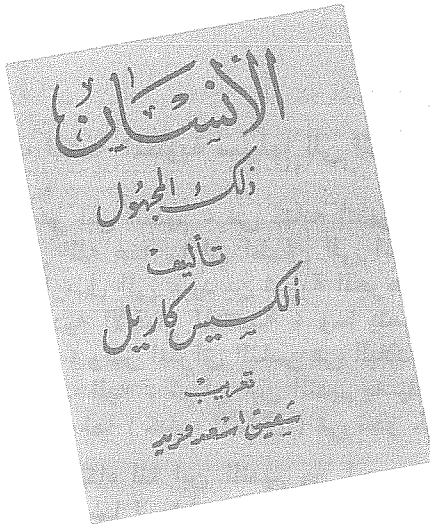 الإنسان
ذلك المجهول
تأليف
ألكسيس كاريل
تعريب
شفيق اسعد فريد